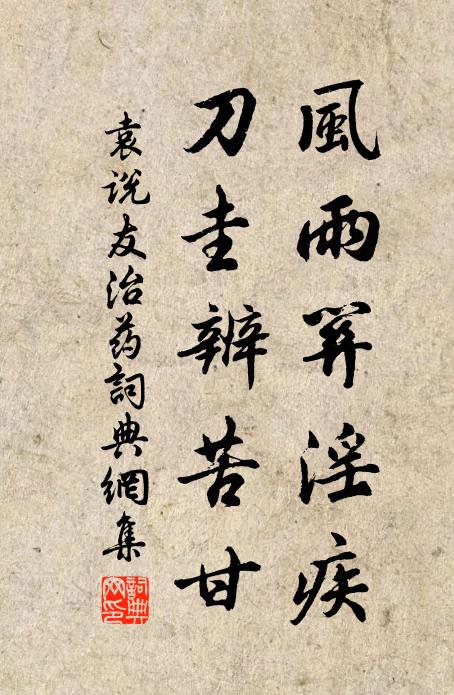 風雨淫疾
刀圭辨苦甘
袁说友治药詞典網集
詞典
网印